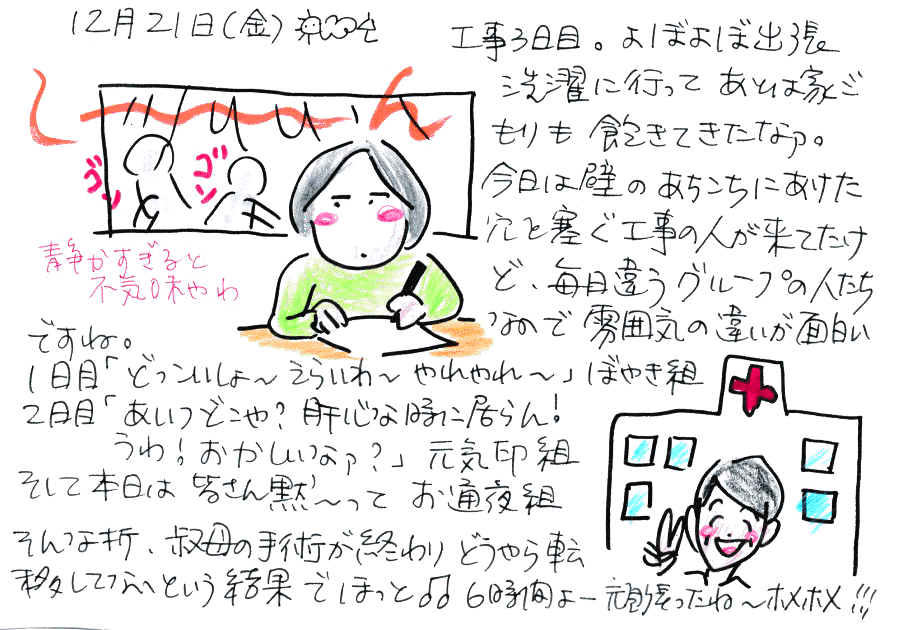 12月21日(金)
工事3日目。よぼよぼ出張
洗濯に行って あとは家ご
もりも 飽きてきたなァ。
今日は壁の あちこちにあけた
穴を塞ぐ工事の人が来てたけ
ど、毎日違うグループの人たち
なので 雰囲気の違いが面白い
ですね。
しーん
ゴン
ゴン
静かすぎると
不気味やわ
1日目「どっこいしょ〜 えらいわ〜 やれやれ〜」ぼやき組
2日目「あいつどこや?肝心な時に居らん!
うわ!おかしいなァ?」元気印組
そして本日は 皆さん黙〜って お通夜組
そんな折、叔母の手術が終わり どうやら転
移してないという結果 でほっと♫♫ 6時間よー頑張ったね〜ホメホメ!!!